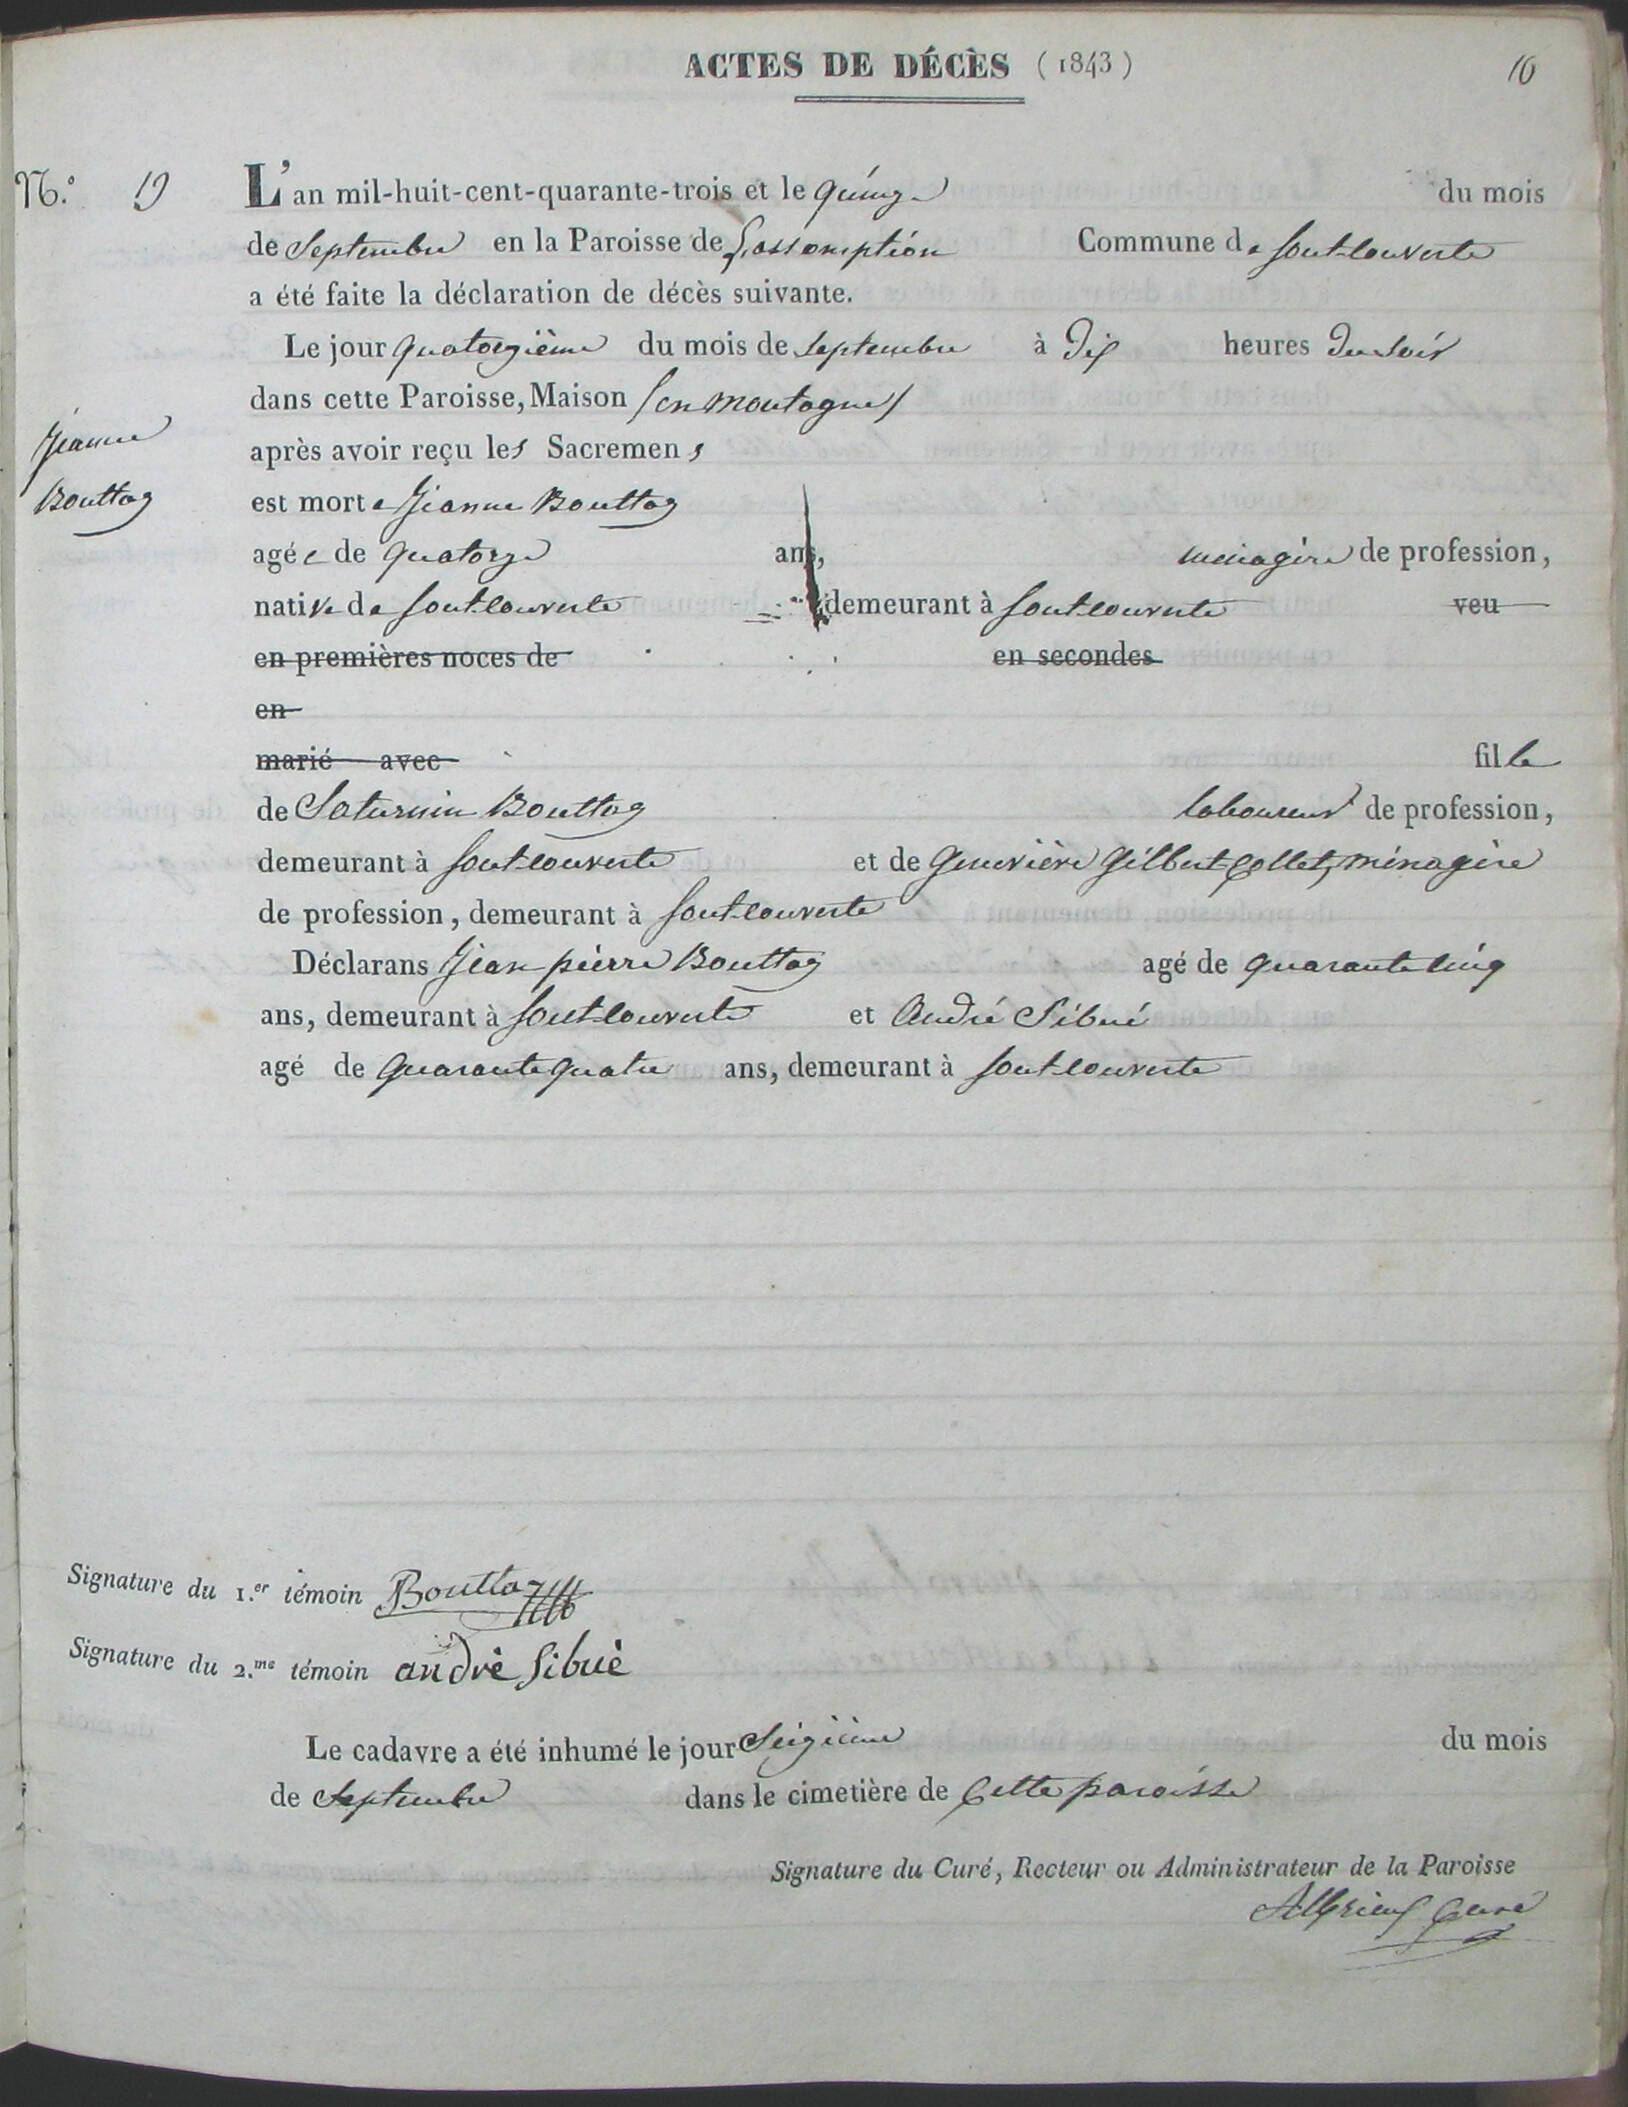 ACTES DE DÉCÈS (1843) 10
N.° 19 L'an mil-huit-cent-quarante-trois et le quinze du mois
de Septembre en la Paroisse de L'assomption Commune de fontcouverte
a été faite la déclaration de décès suivante.
Le jour quatorzième du mois de septembre à Dix heures Du soir
dans cette Paroisse, Maison (en montagne)
après avoir reçu les Sacremens
Jeanne
Bouttaz
est morte Jeanne Bouttaz
agée de quatorze ans, ménagère de profession,
native de fontcouverte demeurant à fontcouverte veu
en premières noces de en secondes
en
marié avec fille
de Saturnin Bouttaz laboureur de profession,
demeurant à fontcouverte et de Genevière Gilbert Collet, ménagère
de profession, demeurant à fontcouverte
Déclarans Jean pierre Bouttaz agé de quarante cinq
ans, demeurant à fontcouverte et André Sibué
agé de quarante quatre ans, demeurant à fontcouverte
Signature du 1.er témoin Bouttaz
Signature du 2.me témoin andré Sibué
Le cadavre a été inhumé le jour Seizième du mois
de Septembre dans le cimetière de cette paroisse
Signature du Curé, Recteur ou Administrateur de la Paroisse
Curé